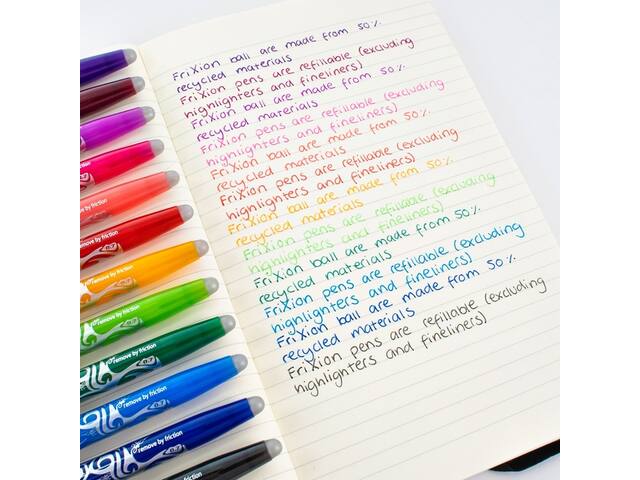 FriXion ball are made from 50%
recycled materials
FriXion pens are refillable (excluding
highlighters and fineliners)
FriXion ball are made from 50%
recycled materials
FriXion pens are refillable (excluding
highlighters and fineliners)
FriXion ball are made from 50%
recycled materials
FriXion pens are refillable (excluding
highlighters and fineliners)
FriXion ball are made from 50%
recycled materials
FriXion pens are refillable (excluding
highlighters and fineliners)
FriXion ball are made from 50%
recycled materials
FriXion pens are refillable (excluding
highlighters and fineliners)
FriXion ball are made from 50%
recycled materials
FriXion pens are refillable (excluding
highlighters and fineliners)
remove by friction
remove by friction
remove by friction
remove by friction
0.7
remove by friction
0.7
remove by friction
0.7
remove by friction